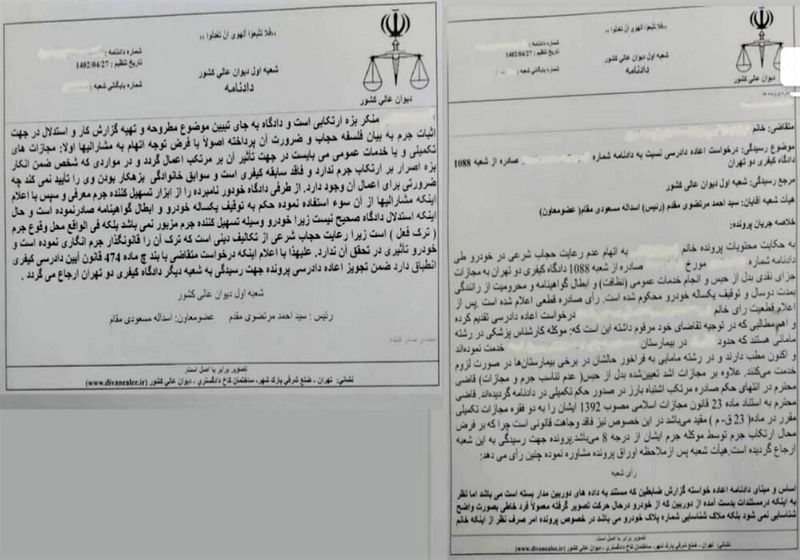 «فلا تتبعوا الهوی ان تعدلوا»
شماره دادنامه
تاریخ تنظیم : 1402/04/27
شماره بایگانی شعبه :
شعبه اول دیوان عالی کشور
دادنامه
دیوان عالی کشور
متقاضی: خانم
موضوع رسیدگی: درخواست اعاده دادرسی نسبت به دادنامه شماره صادره از شعبه 1088
دادگاه کیفری دو تهران
مرجع رسیدگی: شعبه اول دیوان عالی کشور
هیأت شعبه آقایان: سید احمد مرتضوی مقدم (رئیس) اسداله مسعودی مقام( عضومعاون)
خلاصه جریان پرونده:
به حکایت محتویات پرونده خانم به اتهام عدم رعایت حجاب شرعی در خودرو طی
دادنامه شماره مورخ صادره از شعبه 1088 دادگاه کیفری دو تهران به مجازات
جزای نقدی بدل از حبس و انجام خدمات عمومی (نظافت) و ابطال گواهینامه و محرومیت از رانندگی
بمدت دوسال و توقیف یکساله خودرو محکوم شده است. رأی صادره قطعی اعلام شده است .پس از
اعلام قطعیت رأی خانم درخواست اعاده دادرسی تقدیم کرده
و اهم مطالبی که در توجیه تقاضای خود مرقوم داشته این است که: موکله کارشناس پزشکی در رشته
مامائی هستند که حدود در بیمارستان خدمت نموده‌اند
و اکنون مطب دارند و در رشته مامایی به فراخور حالشان در برخی بیمارستان‌ها در صورت لزوم
خدمت می‌کنند. علاوه بر مجازات اشد تعیین‌شده بدل از حبس( عدم تناسب جرم و مجازات) قاضی
محترم در انتهای حکم صادره مرتکب اشتباه بارز در صدور حکم تکمیلی در دادنامه گردیده‌اند. قاضی
محترم به استناد ماده 23 قانون مجازات اسلامی مصوب 1392 ایشان را به دو فقره مجازات تکمیلی
مقرر در ماده( 23 ق- م ) مقید می‌باشد در این خصوص نیز فاقد وجاهت قانونی است چرا که بر فرض
محال ارتکاب جرم توسط موکله جرم ایشان از درجه 8 می‌باشد.پرونده جهت رسیدگی به این شعبه
ارجاع گردیده است.هیأت شعبه پس ازملاحظه اوراق پرونده مشاوره نموده چنین رأی می دهد:
رأی شعبه
اساس و مبنای دادنامه اعاده خواسته گزارش ضابطین که مستند به داده های دوربین مدار بسته است می باشد اما نظر
به اینکه درمستندات بدست آمده از دوربین که از خودرو درحال حرکت تصویر گرفته معمولاً فرد خاطی بصورت واضح
شناسایی نمی شود بلکه ملاک شناسایی شماره پلاک خودرو می باشد در خصوص پرونده امر صرف نظر از اینکه خانم
تصویر برابر با اصل است
نشانی: تهران - ضلع شرقی پارک شهر، ساختمان کاخ دادگستری ، دیوان عالی کشور (www.divanealee.ir)
«فلا تتبعوا الهوی ان تعدلوا»
شماره دادنامه
تاریخ تنظیم : 1402/04/27
شماره بایگانی شعبه :
شعبه اول دیوان عالی کشور
دادنامه
دیوان عالی کشور
منکر بزه ارتکابی است و دادگاه به جای تبیین موضوع مطروحه و تهیه گزارش کار و استدلال در جهت
اثبات جرم به بیان فلسفه حجاب و ضرورت آن پرداخته اصولا با فرض توجه اتهام به مشارالیها اولا: مجازات های
تکمیلی و یا خدمات عمومی می بایست در جهت تأثیر آن بر مرتکب اعمال گردد و در مواردی که شخص ضمن انکار
بزه اصرار بر ارتکاب جرم ندارد و فاقد سابقه کیفری است و سوابق خانوادگی بزهکار بودن وی را تأیید نمی کند چه
ضرورتی برای اعمال آن وجود دارد. از طرفی دادگاه خودور نامبرده را از ابزار تسهیل کننده جرم معرفی و سپس با اعلام
اینکه مشارالیها از آن سوء استفاده نموده حکم به توقیف یکساله خودرو و ابطال گواهینامه صادرنموده است و حال
اینکه استدلال دادگاه صحیح نیست زیرا خودرو وسیله تسهیل کننده جرم مزبور نمی باشد بلکه فی الواقع محل وقوع جرم
( ترک فعل ) است زیرا رعایت حجاب شرعی از تکالیف دینی است که ترک آن را قانونگذار جرم انگاری نموده است و
خودرو تأثیری در تحقق آن ندارد. علیهذا با اعلام اینکه درخواست متقاضی با بند چ ماده 474 قانون آیین دادرسی کیفری
انطباق دارد ضمن تجویز اعاده دادرسی پرونده جهت رسیدگی به شعبه دیگر دادگاه کیفری دو تهران ارجاع می گردد .
شعبه اول دیوان عالی کشور
رئیس : سید احمد مرتضوی مقدم عضومعاون: اسداله مسعودی مقام
تصویر برابر با اصل است
نشانی: تهران - ضلع شرقی پارک شهر، ساختمان کاخ دادگستری ، دیوان عالی کشور (www.divanealee.ir)